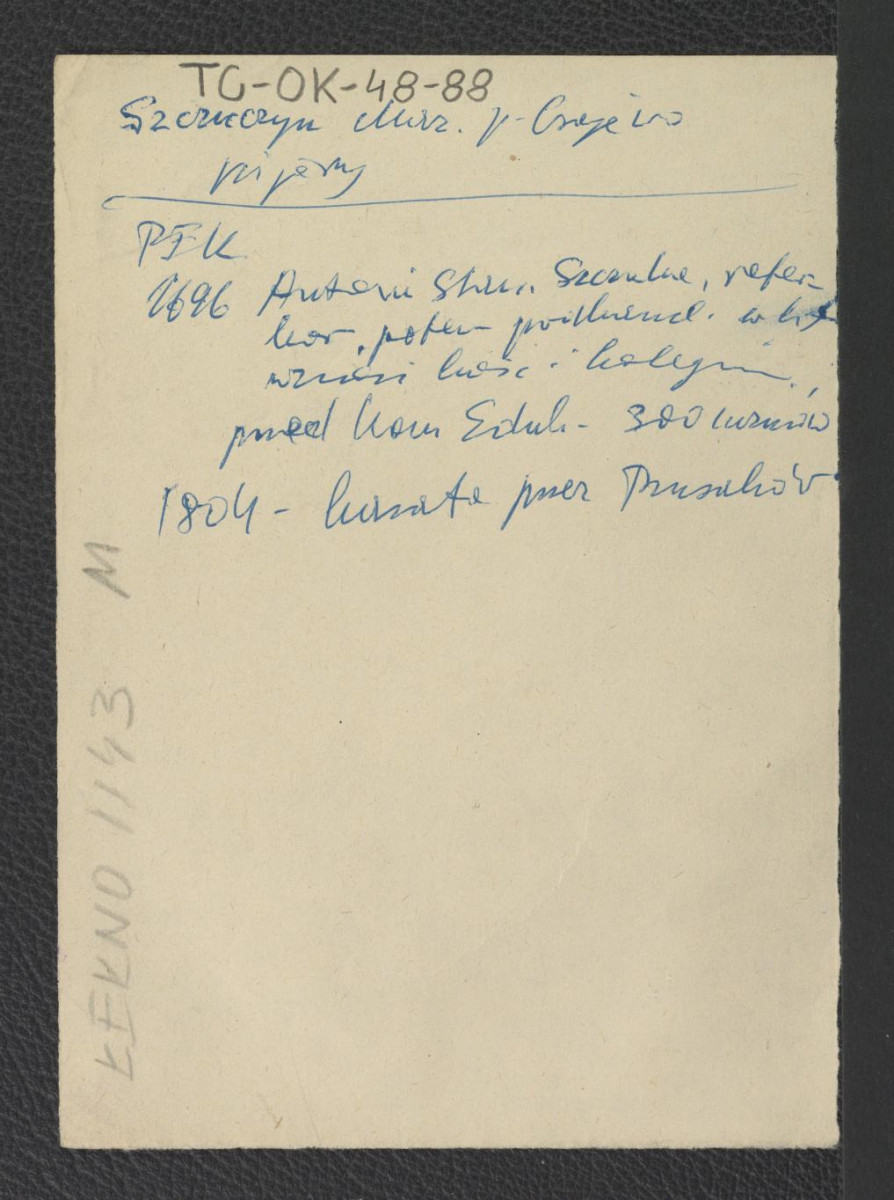 TG-OK-48-88
Szczuczyn Maz. p. Grajewo
pijarzy
PEK
1696 Antoni Stan. Szczuka, refer-
kor, potem podkancl. w
wznosi kość. i kolegium,
przed Kom Eduk - 300 uczniów
1804 - kasata przez Prusaków
KEKNO 1143 M